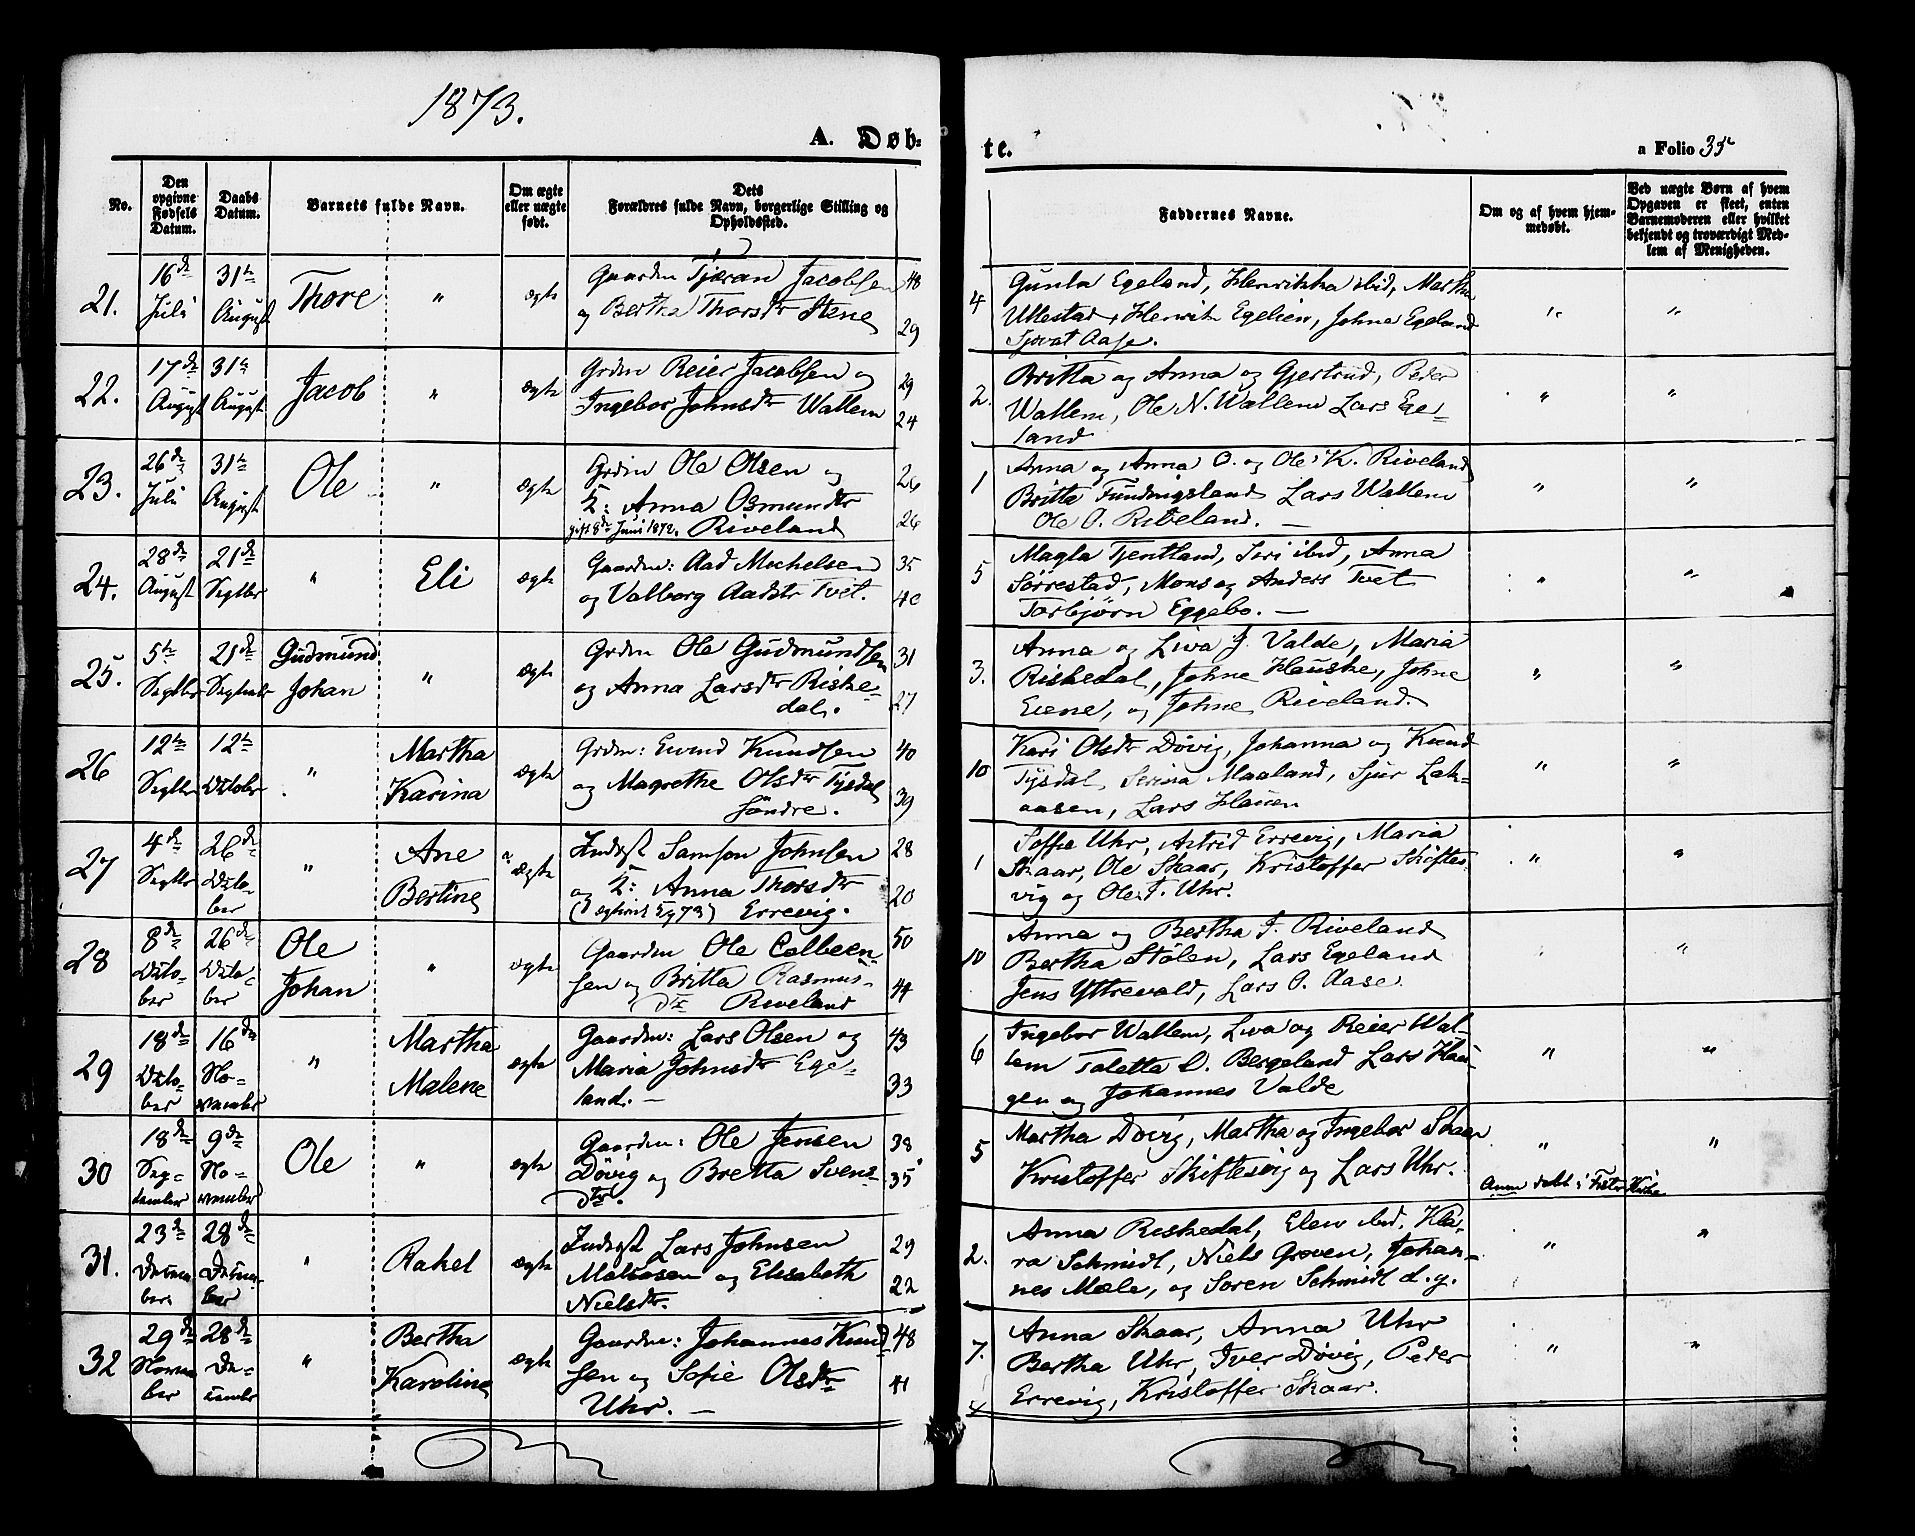 1873.
A. Døb-
te.
a Folio 35
No.
Den opgivne Fødsels Datum.
Daabs Datum.
Barnets fulde Navn.
Om ægte eller uægte født.
Dets Forældres fulde Navn, borgerlige Stilling og Opholdssted.
Faddernes Navne.
Om og af hvem hjemmedøbt.
Ved uægte Børn af hvem Opgaven er skeet, enten Barnemoderen eller hvilket bekjendt og troværdigt Medlem af Menigheden.
21. 16de Juli 31te August Thore " ægte
Gaardm Tjøran Jacobsen 48
og Bertha Thorsdtr Stene 29
4 Gunla Egeland, Henrikka ibid, Martha
Ullestad, Henrik Egelien, Johne Egeland
Tjovat Aase. " "
22. 17de August 31te August Jacob " ægte
Grdm Reier Jacobsen og 29
Ingebor Johnsdtr Wallem 24
2. Britta og Anna og Gjertrud, Peder
Wallem, Ole N. Wallem Lars Ege-
land " "
23. 26de Juli 31te August Ole " ægte
Grdm Ole Olsen og 26
K: Anna Osmundtr 26
gift 8de Juni 1872. Riveland
1 Anna og Anna O. og Ole K. Riveland
Britta Tundrigsland Lars Wallem
Ole O. Riveland. — " "
24. 28de August 21de Septbr " Eli ægte
Gaardm: Aad Mechelsen 35
og Valborg Aadstr Tvet. 40
5 Magla Tjentland, Seri ibid, Anna
Sørrestad, Mons og Anders Tvet
Torbjørn Eggebo. — " "
25. 5te Septbr 21de Septmbr Gudmund Johan " ægte
Grdm Ole Gudmundsen 31
og Anna Larsdtr Riske- 27
dal.
3. Anna og Liva J. Valde, Maria
Riskedal, Johne Hauske, Johne
Eiene, og Johne Riveland. " "
26 12te Septbr 12te Octobr " Martha Karina ægte
Grdm: Eivind Knudsen 40
og Magrethe Olsdtr Tysdal 39
Søndre.
10 Kari Olsdtr Døvig, Johanna og Knud
Tysdal, Serina Maaland, Sjur Lak-
aasen, Lars Hauen " "
27 4de Septbr 26de Octo-ber " Ane Bertine ægte
Inderst Samson Johnsen 28
og K: Anna Thorsdtr 20
Errevig.
1 Soffie Uhr, Astrid Errevig, Maria
Skaar, Ole Skaar, Kristoffer Skiftes-
vig og Ole T. Uhr. " "
28 8de Octo-ber 26de Octo-ber Ole Johan " ægte
Gaardm Ole Colbeen- 50
sen og Britta Rasmus- 44
dtr Riveland
10 Anna og Bertha J. Riveland
Bertha Stølen, Lars Egeland
Jens Yttrevold, Lars O. Aase. "
29 18de Octo-ber 16de No-vember " Martha Malene ægte
Gaardm: Lars Olsen og 43
Maria Johnsdtr Ege- 33
land. —
6 Ingebor Wallem, Liva og Reier Wal-
lem Taletta L. Bergeland Lars Hau-
gen og Johannes Valde " "
30 18de Sep-tember 9de No-vember Ole " ægte
Gaardm: Ole Jensen 38
Døvig og Bretta Svens- 35
dtr.
5 Martha Døvig, Martha og Ingebor Skaar
Kristoffer Skiftesvig og Lars Uhr. " "
31. 23de Decem-ber 28de Decem-ber " Rakel ægte
Inderst Lars Johnsen 29
Molaasen og Elisabeth 22
Nielsdtr.
Anm døbt i Fister Kirke
2. Anna Riskedal, Elen ibid. Kla-
ra Schmidl, Niels Groven, Johan-
nes Mæle, og Søren Schmidl d.y. " "
32 29de Novem-ber 28de De-cember " Bertha Karoline ægte
Gaardm: Johannes Knud- 48
sen og Sofie Olsdtr 41
Uhr. —
7. Anna Skaar, Anna Uhr
Bertha Uhr, Iver Døvig, Peder
Errevig, Kristoffer Skaar. " "